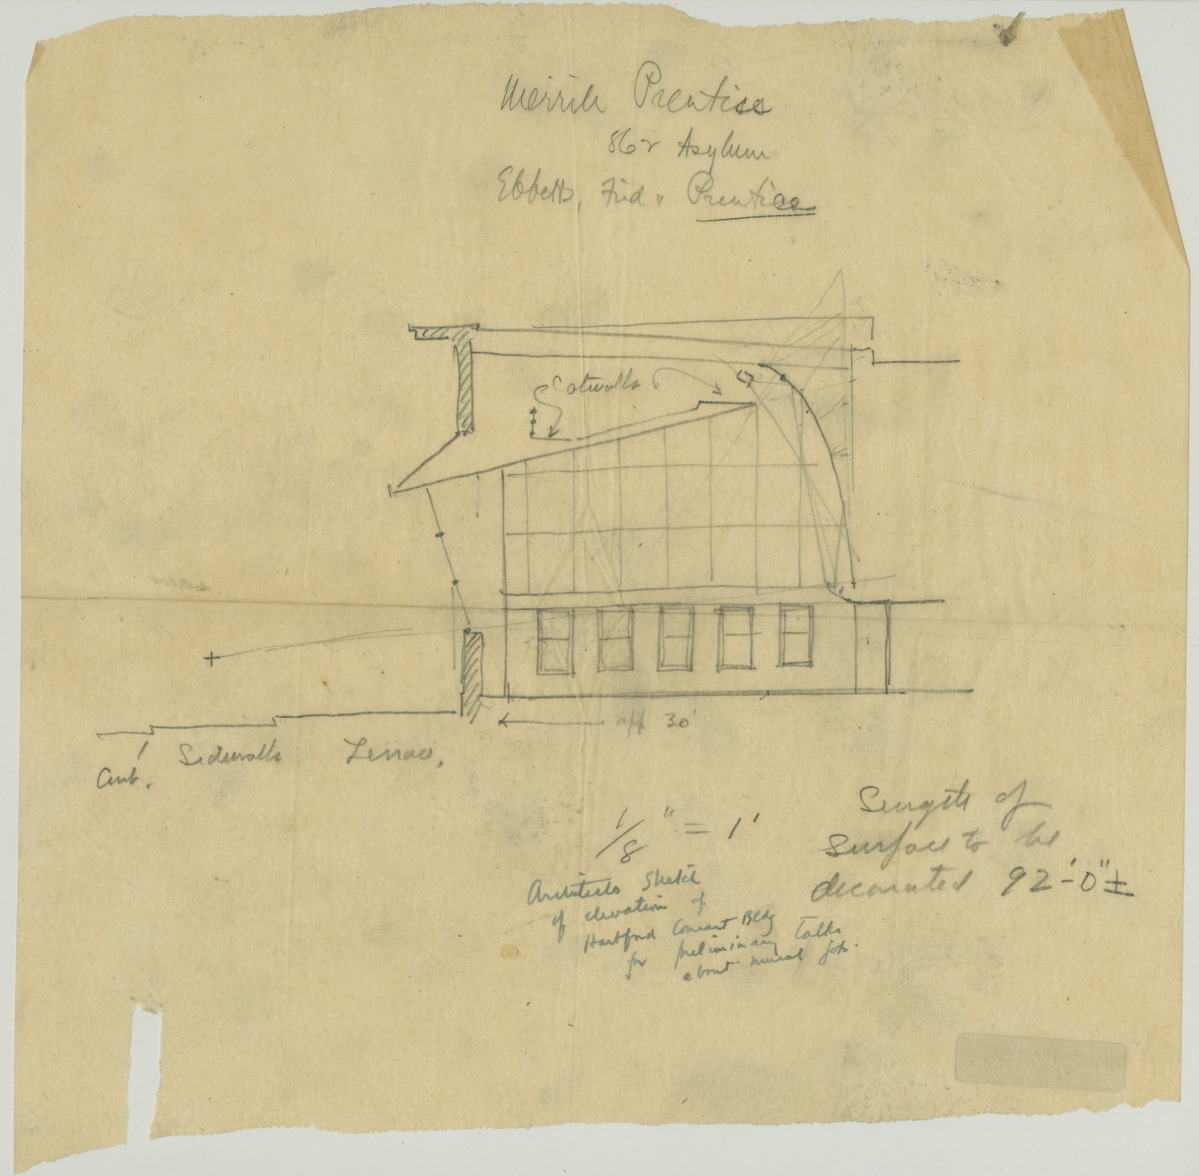 Merrill Prentice
862 Asylum
Ebbets, Frid & Prentice
Catwalks
app 30'
Curb.
Sidewalk
Terrace.
1/8" = 1'
Length of
surface to be
decorated 92'-0"±
Architects Sketch
of elevation of
Hartford Bldg
for preliminary talks
about mural job.